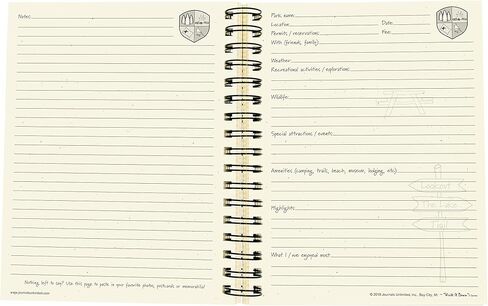 Notes:
Nothing left to say? Use this page to paste in your favorite photos, postcards or memorabilia!
www.journalsunlimited.com
Park name:
Location: Date:
Permits / reservations: Fee:
With (friends, family):
Weather:
Recreational activities / explorations:
Wildlife:
Special attractions / events:
Amenities (camping, trails, beach, museum, lodging, etc):
Lookout
The Lake
Trail
Highlights:
What I / we enjoyed most:
© 2015 Journals Unlimited, Inc., Bay City, MI "Write it Down!"